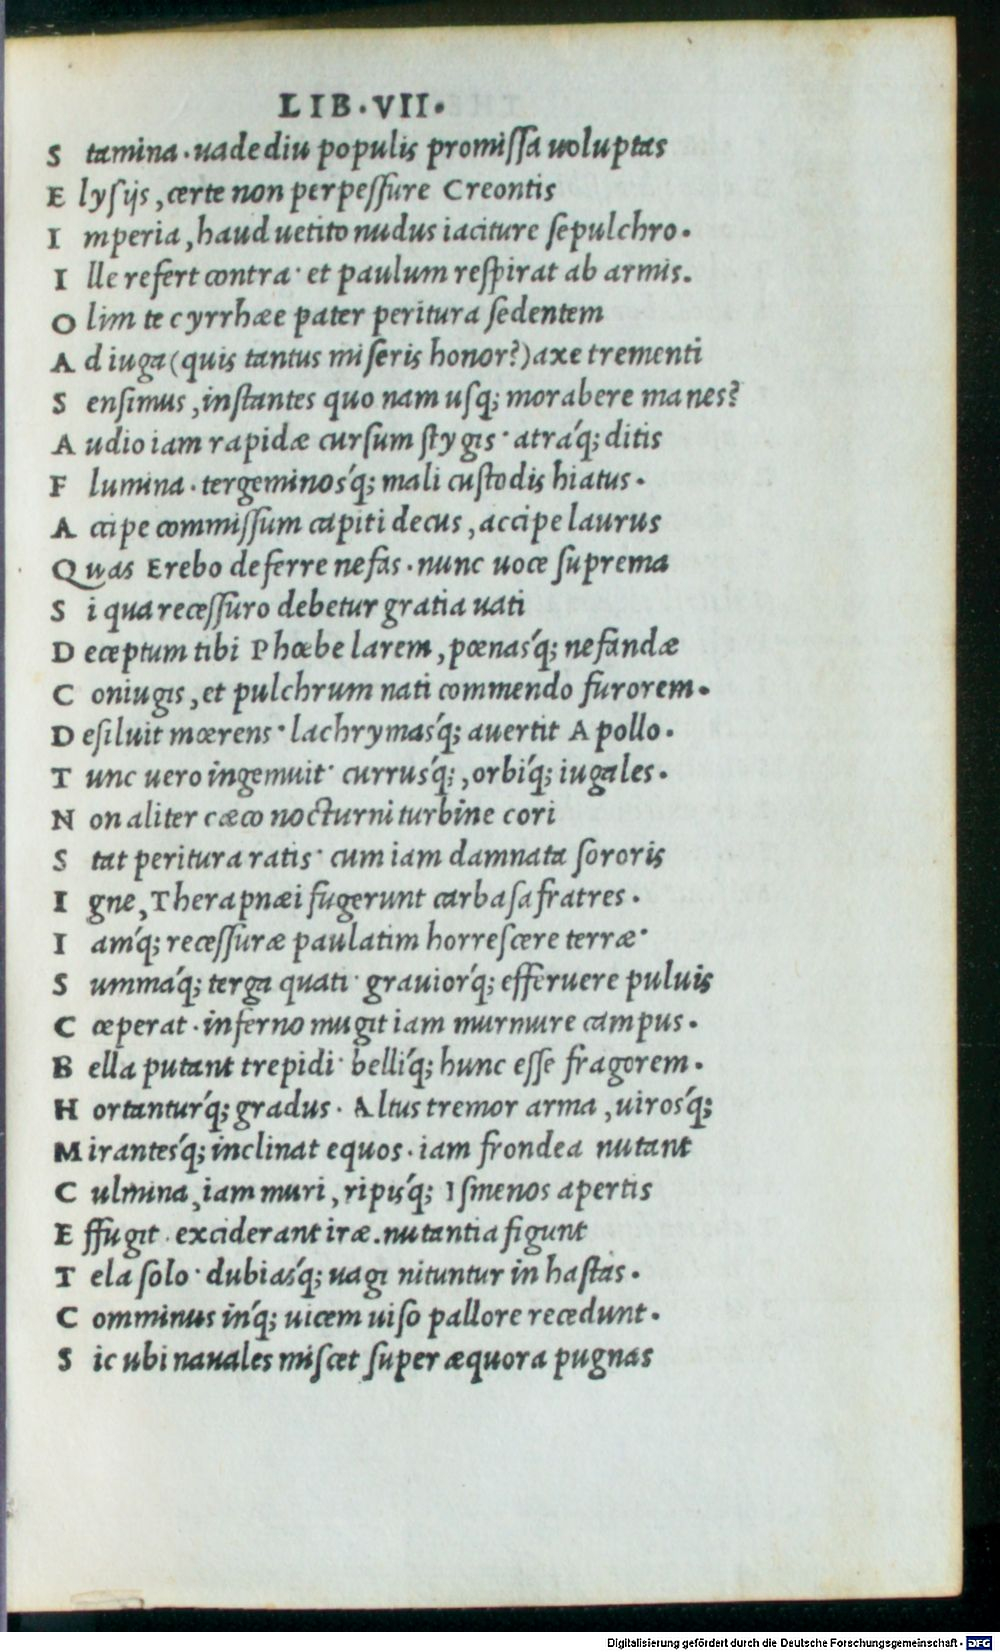 LIB·VII·
S tamina·uade diu populis promissa uoluptas
E lysijs, certe non perpessure Creontis
I mperia, haud uetito nudus iaciture sepulchro.
I lle refert contra· et paulum respirat ab armis.
O lim te cyrrhæe pater peritura sedentem
A d iuga (quis tantus miseris honor?) axe trementi
S ensimus, instantes quo nam usq; morabere manes?
A udio iam rapidæ cursum stygis· atráq; ditis
F lumina·tergeminosq́; mali custodis hiatus.
A ccipe commissum capiti decus, accipe laurus
Q uas Erebo deferre nefas·nunc uoce suprema
S i qua recessuro debetur gratia uati
D eceptum tibi Phœbe larem, pœnasq́; nefandæ
C oniugis, et pulchrum nati commendo furorem.
D esiluit mœrens· lachrymasq́; auertit Apollo.
T unc uero ingemuit· currusq́;, orbiq́; iugales.
N on aliter cæco nocturni turbine cori
S tat peritura ratis· cum iam damnata sororis
I gne, Therapnæi fugerunt carbasa fratres.
I amq́; recessuræ paulatim horrescere terræ·
S ummaq́; terga quati· grauiorq́; efferuere puluis
C œperat·inferno mugit iam murmure campus.
B ella putant trepidi· belliq́; hunc esse fragorem.
H ortanturq́; gradus· Altus tremor arma, uirosq́;
M irantesq́; inclinat equos·iam frondea nutant
C ulmina, iam muri, ripisq́; Ismenos apertis
E ffugit· exciderant iræ.nutantia figunt
T ela solo· dubiasq́; uagi nituntur in hastas.
C omminus inq́; uicem uiso pallore recedunt.
S ic ubi nauales miscet super æquora pugnas
Digitalisierung gefördert durch die Deutsche Forschungsgemeinschaft - DFG